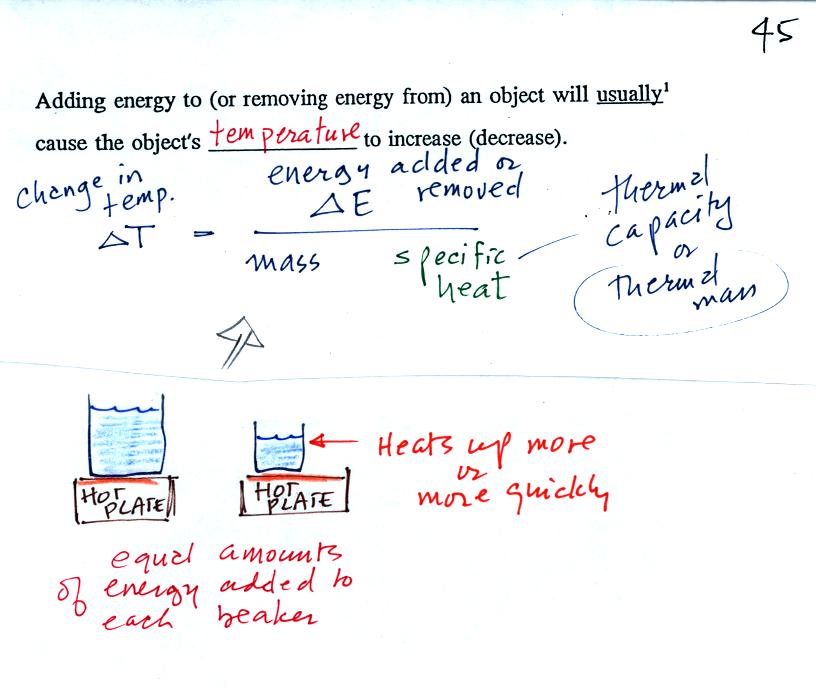 45
Adding energy to (or removing energy from) an object will usually¹
cause the object's temperature to increase (decrease).
change in
temp.
ΔT
=
energy added or
removed
ΔE
mass
specific
heat
thermal
capacity
or
thermal
mass
HOT
PLATE
HOT
PLATE
Heats up more
or
more quickly
equal amounts
of energy added to
each beaker